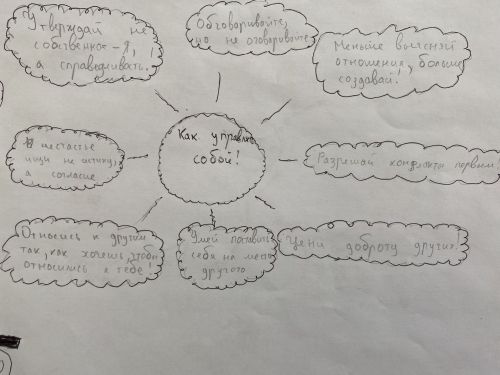 Утверждай не
собственное-Я, !
а справедливать.
Обговоривайте,
но не оговоривайте
Меньше выясняй
отношения, больше
создавай!
Как управлять
собой!
В несчастье
ищи не истину,
а согласие
Разрешай конфликты первым!
Относись к другим
так, как хочешь, чтобы
относились к тебе!
Умей поставить
себя на место
другого
Цени доброту других!